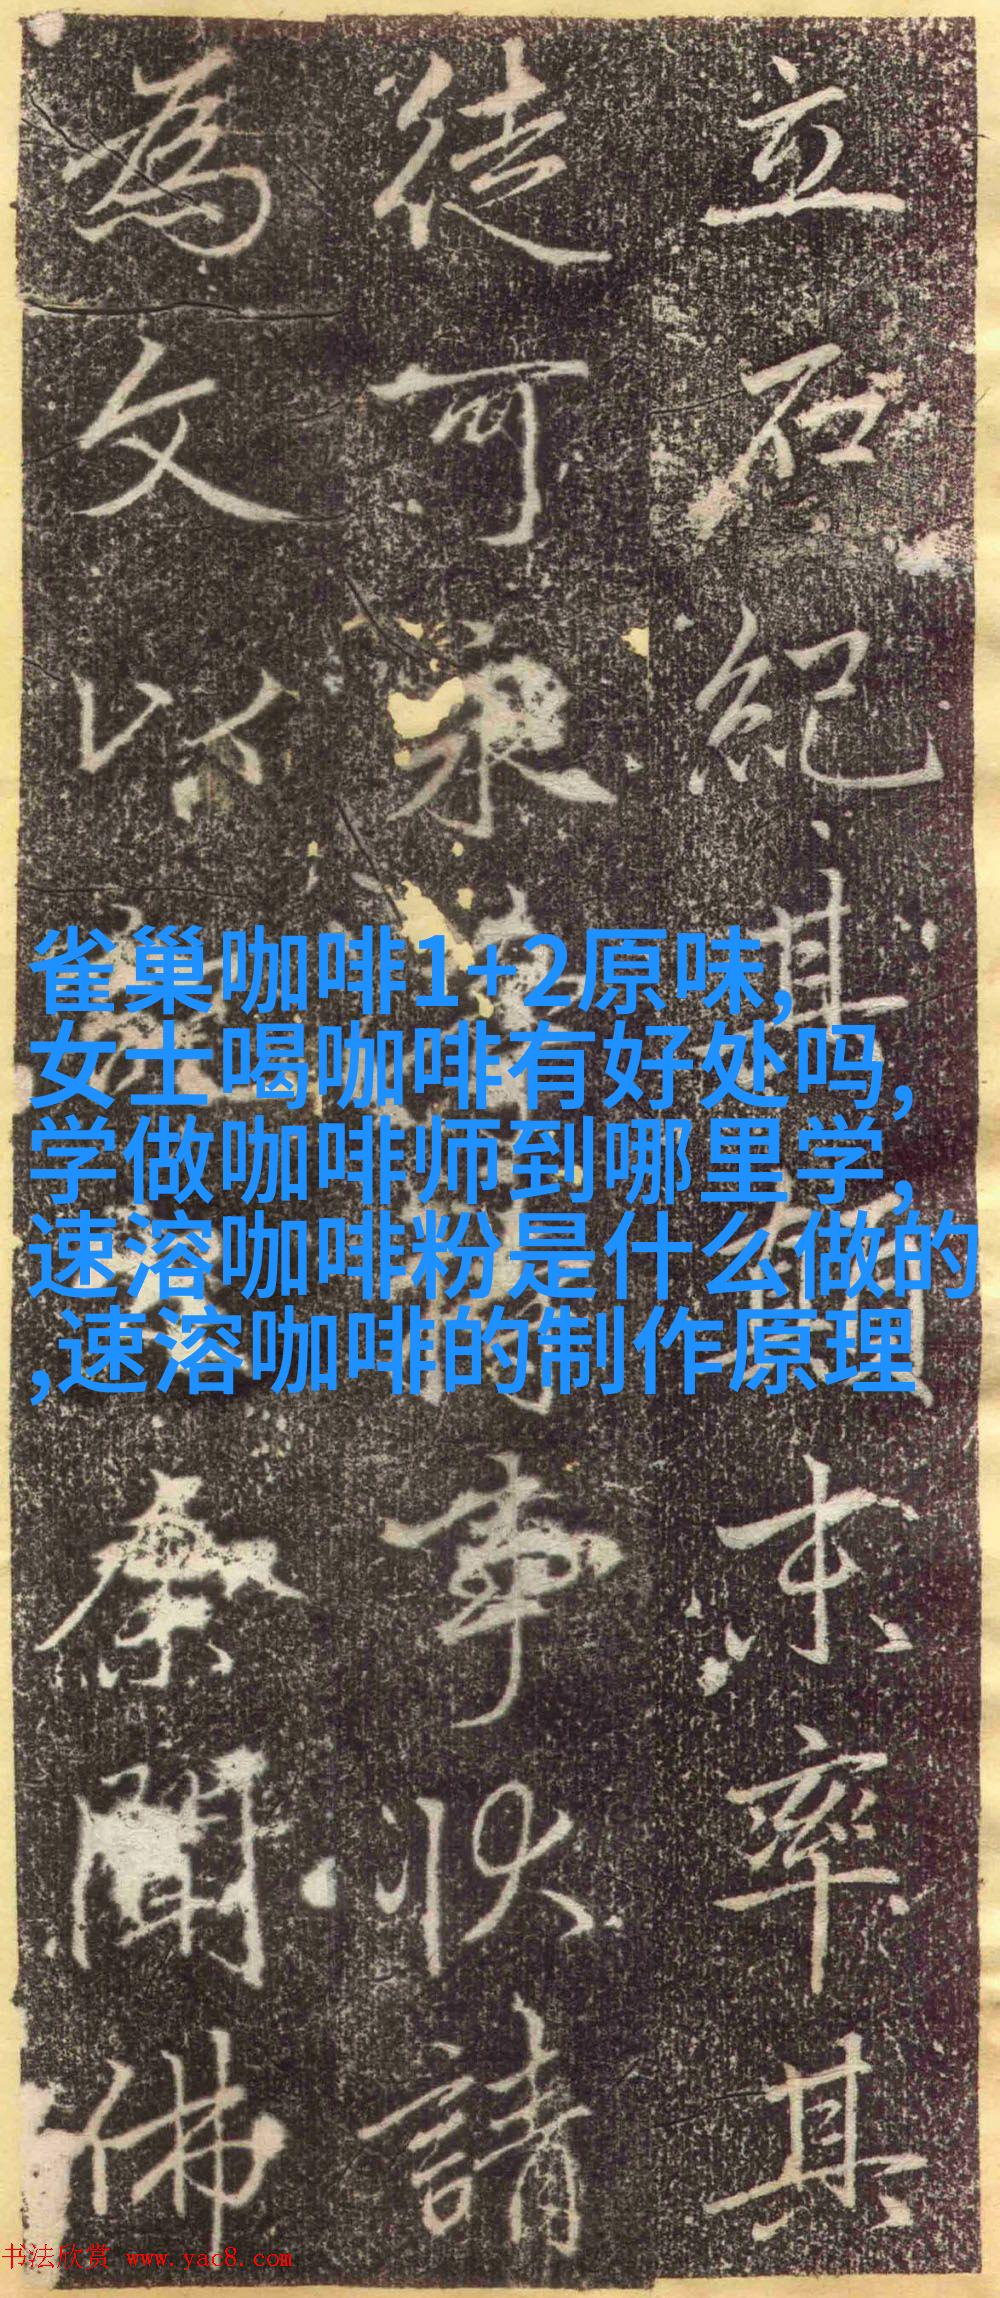 立石紀其末率其
徒可事状請
為文以聞佛
雀巢咖啡1+2原味,
女士喝咖啡有好处吗,
学做咖啡师到哪里学,
速溶咖啡粉是什么做的
,速溶咖啡的制作原理
书法欣赏 www.yac8.com